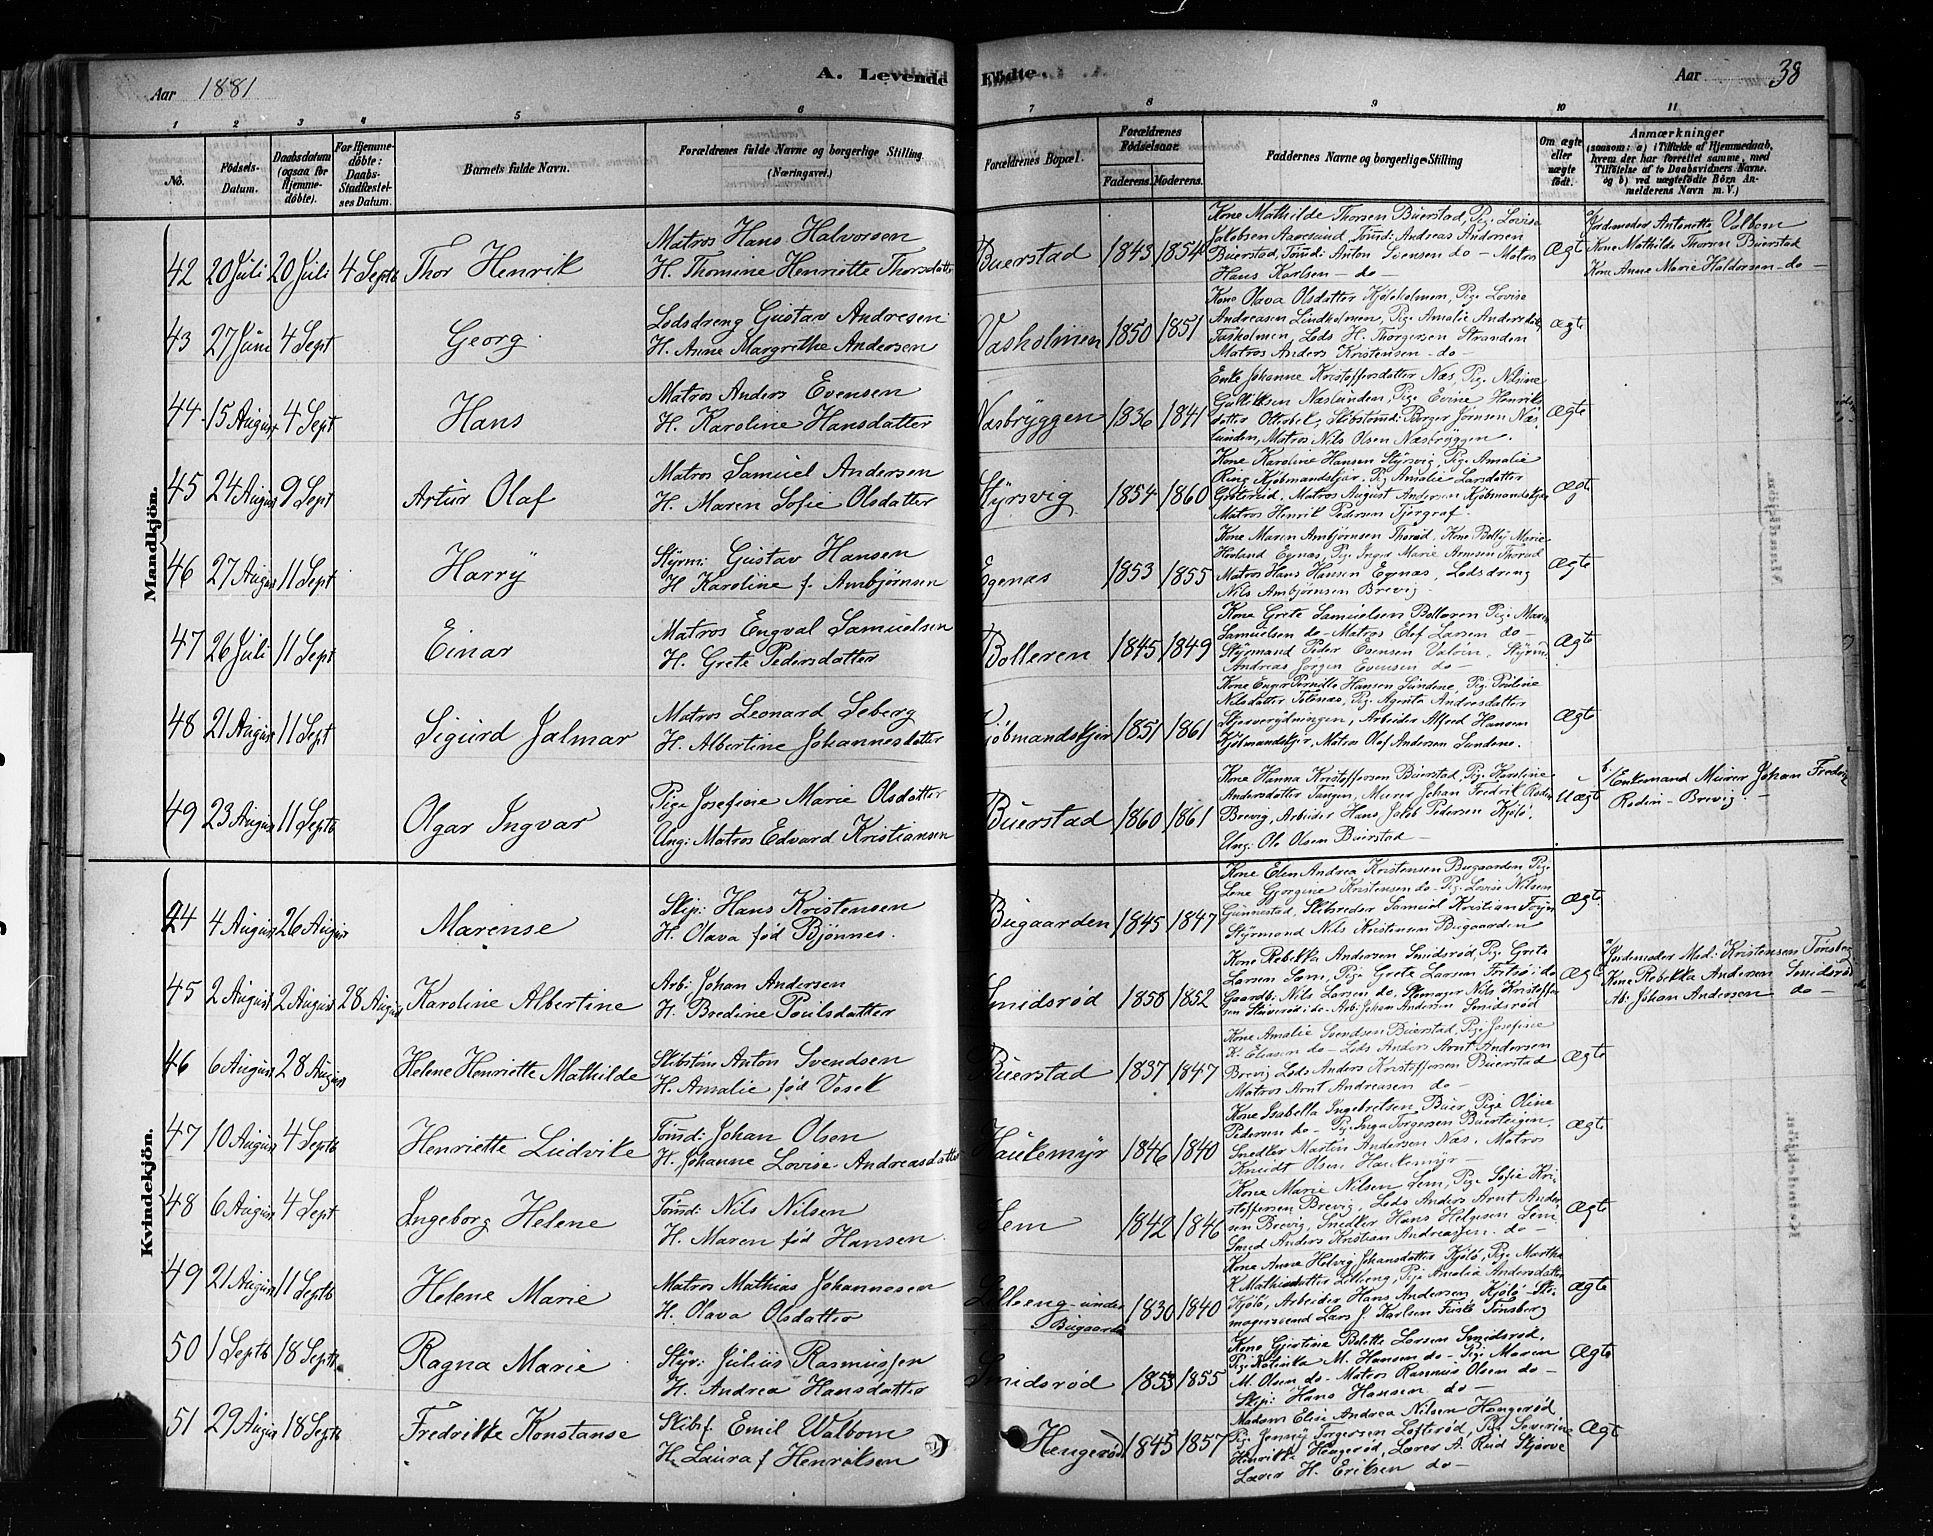 Aar 1881
A. Levende Födte.
Aar 38
1 2 3 4 5 6 7 8 9 10 11
No.
Födsels-Datum.
Daabsdatum (ogsaa for Hjemmedöbte).
For Hjemmedöbte: Daabs-Stadfæstelses Datum.
Barnets fulde Navn.
Forældrenes fulde Navne og borgerlige Stilling (Næringsvei.)
Forældrenes Bopæl.
Forældrenes Födselsaar.
Faderens. Moderens.
Faddernes Navne og borgerlige Stilling
Om ægte eller uægte födt.
Anmærkninger
(saasom: a) i Tilfælde af Hjemmedaab, hvem der har forrettet samme, med Tilföielse af to Daabsvidners Navne. og b) ved uægtefödte Börn Anmelderens Navn m. V.)
Mandkjön.
42 20 Juli 20 Juli 4 Septb Thor Henrik
Matros Hans Halvorsen
H. Thomine Henriette Thorsdatter
Buerstad 1843 1854 Ægte
Kone Mathilde Thorsen Buerstad, Pige Lovise
Jakobsen Aaresund, Tømd: Andreas Andersen
Buerstad, Tømd: Anton Svensen do – Matros
Hans Karlsen – do –
a/ Jordemoder Antonette Valbom
Kone Mathilde Thorsen Buerstad
Kone Anne Marie Haldorsen – do –
43 27 Juni 4 Sept Georg
Lodsdreng Gustav Andresen
H. Anne Margrethe Andersen
Vasholmen 1850 1851 Ægte
Kone Olava Olsdatter Kjøleholmen, Pige Lovise
Andreasen Lindholmen, Pige Amalie Andersdatter
Lods H. Thorgersen Stranden
Matros Anders Kristensen – do –
44 15 August 4 Sept Hans
Matros Anders Evensen
H. Karoline Hansdatter
Næsbryggen 1836 1841 Ægte
Enke Johanne Kristoffersdatter Næs, Pige Nilsine
Gulliksen Næslunden, Pige Evine Henriks
datter Otterbek, Skibstømd: Borger Jørnsen Næs
lunden, Matros Nils Olsen Næsbryggen.
45 24 August 9 Sept Artur Olaf
Matros Samuel Andersen
H. Maren Sofie Olsdatter
Styrsvig 1854 1860 Ægte
Kone Karoline Hansen Styrsvig, Pige Amalie
Ring Kjøbmandskjær, Pig Amalie Larsdatter
Grøterød, Matros August Andersen Kjøbmandskjær
Matros Henrik Pedersen
46 27 August 11 Sept Harry
Styrm: Gustav Hansen
H. Karoline f. Ambjørnsen
Egenæs 1853 1855 Ægte
Kone Maren Ambjørnsen Thorød, Kone Bolly Marie
Hovland Egnæs, Pige Inger Marie Arnesen Thorød
Matros Hans Hansen Egenæs, Lodsdreng
Nils Ambjørnsen Brevig
47 26 Juli 11 Sept Einar
Matros Engval Samuelsen
H. Grete Pedersdatter
Bolleren 1845 1849 Ægte
Kone Grete Samuelsen Bolleren Pige Maren
Samuelsen do – Matros Elef Larsen do –
Styrmand Peder Evensen Valøin, Styrm:
Andreas Jørgen Evensen do –
48 21 August 11 Sept Sigurd Jalmar
Matros Leonard Seberg
H. Albertine Johannesdatter
Kjøbmandskjer 1851 1861 Ægte
Kone Enger Pernille Hansen Sundene, Pig. Pouline
Nilsdatter Tolenæs, Pig. Agenta Andreasdatter
Arbeider Alfred Hansen
Kjøbmandskjær, Matros Olaf Andersen Sundene.
49 23 August 11 Septb Olgar Ingvar
Pige Josefine Marie Olsdatter
Ung: Matros Edvard Kristiansen
Buerstad 1860 1861 Uægte
Kone Hanna Kristoffersen Buerstad, Pige Karoline
Andersdatter Tangen, Murer Johan Fredrik Rodin
Brevig, Arbeider Hans Jakob Pedersen Kjøle,
Ung: Ole Olsen Buerstad –
b./ Enkemand Murer Johan Fredrik
Rodin – Brevig –
Kvindekjön.
24 4 August 26 August Marense
Skip: Hans Kristensen
H. Olava fød Bjønnes.
Bugaarden 1845 1847 Ægte
Kone Elen Andrea Kristensen Bugaarden Pig.
Lene Gjorgine Kristensen do – Pig: Lovise Nilsen
Gunnestad, Skibsreder Samuel Kristian Foyn
Styrmand Nils Kristensen Bugaarden
45 2 August 2 August 28 August Karoline Albertine
Arb: Johan Andersen
H. Bredine Poulsdatter
Smidsrød 1858 1852 Ægte
Kone Rebekka Andersen Smidsrød, Pig: Grete
Larsen Sem, Pige Grete Larsen
Gaardbr: Nils Larsen do, Skomager Nils Kristoffer
sen do – Arb: Johan Andersen Smidsrød
a/ Jordemoder Mad: Kristensen Tønsberg
Kone Rebekka Andersen Smidsrød
Ab: Johan Andersen do –
46 6 August 28 August Helene Henriette Mathilde
Skibstøm Anton Svendsen
H. Amalie fød Vosek
Buerstad 1837 1847 Ægte
Kone Amalie Svendsen Buerstad, Pig. Josefine
K. Eliasen do – Lods Anders Arnt Andersen
Brevig Lods Anders Kristoffersen Buerstad
Matros Arnt Andreasen do –
47 10 August 4 Septb Henriette Ludvike
Tømd: Johan Olsen
H. Johanne Lovise Andreasdatter
Haukemyr 1846 1840 Ægte
Kone Isabella Ingebretsen, Buer, Pige Oline
Pedersen do – Pig. Inga Torgersen Buersteigen,
Snedker Martin Andersen Næs, Matros
Knudt Olsen Haukemyr –
48 6 August 4 Sept Ingeborg Helene
Tømd: Nils Nilsen
H. Maren fød Hansen
Sem 1842 1846 Ægte
Kone Marie Nilsen Sem, Pige Sofie Kri-
stoffersen Brevig, Lods Anders Arnt Ander
sen Brevig, Snedker Hans Helgesen Sem,
Smed Anders Kristian Andreassen do –
49 21 August 11 Septb Helene Marie
Matros Mathias Johannesen
H. Olava Olsdatter
Lilleeng under Bugaarden 1830 1840 Ægte
Kone Anne Helvig Johansdatter Kjøle, Pige Marthe
K. Mathisdatter Lilleeng, Pige Amalia Andersdatter
Kjøle, Arbeider Hans Andersen Kjøle – Sko-
magersvend Lars J. Karlsen Tønsberg
50 1 Septb 18 Septb Ragna Marie
Styr: Julius Rasmussen
H. Andrea Hansdatter
Smidsrød 1853 1855 Ægte
Kone Gjertine Bolette Larsen Smidsrød,
Pige Kolinka M. Hansen do – Pige Maren
M. Olsen do – Matros Rasmus Olsen do –
Skip: Hans Hansen do –
51 29 August 18 Septb Fredrikke Konstanse
Skibsf. Emil Walbom
H. Laura f Henriksen
Hengerød 1845 1857 Ægte
Madam Elise Andrea Nilsen Hengerød
Pig. Jenny Torgersen Lofterød, Pig Severine
Henrikke Hengerød, Lærer A. Rud Skjerve
Lærer H. Eriksen do –